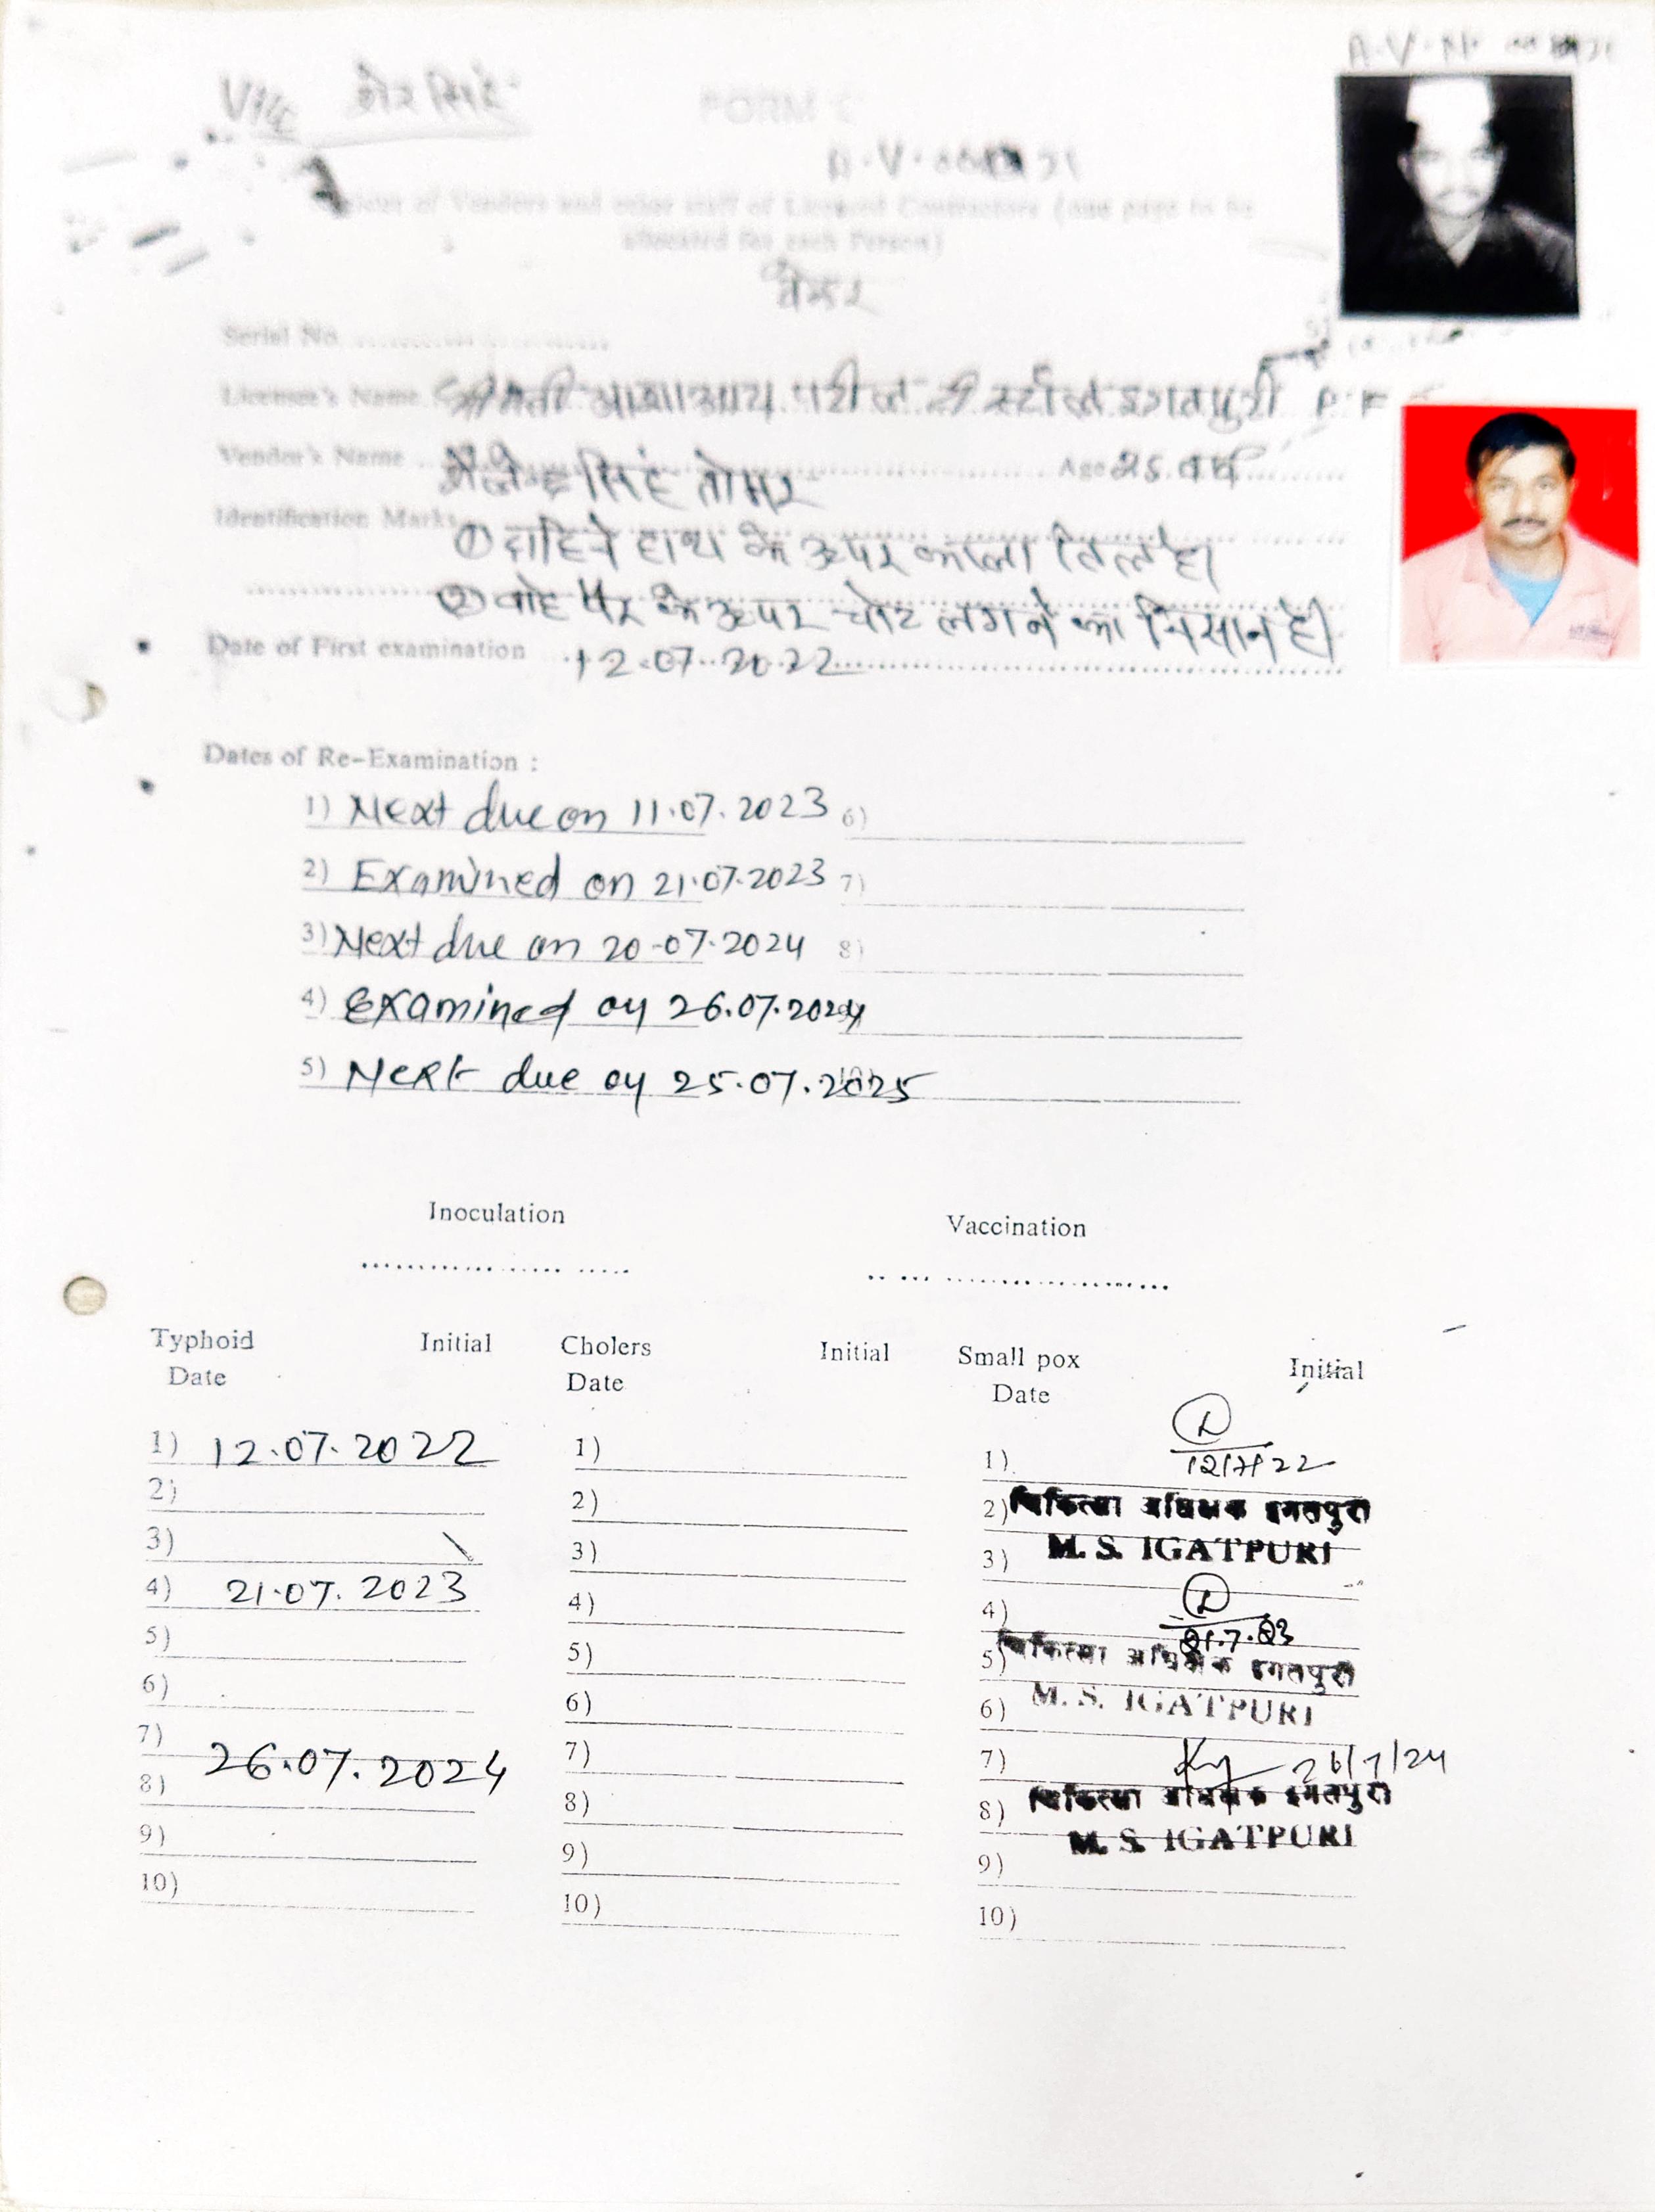 FORM C
of Vendors and other staff of Licensed Contractors (one page to be
allocated for each Person)
Serial No.
Licensee's Name श्रीमती आशाआय पटील टी स्टॉल इगतपुरी
Vendor's Name सिंह तोमर Age 25 वर्ष
Identification Marks ① दाहिने हाथ के ऊपर काला तिल है।
② पैर के ऊपर चोट लगने का निसान है।
Date of First examination 12.07.2022
Dates of Re-Examination :
1) Next due on 11.07.2023 6)
2) Examined on 21.07.2023 7)
3) Next due on 20-07-2024 8)
4) Examined on 26.07.2024
5) Next due on 25.07.2025
Inoculation Vaccination
Typhoid Initial Cholers Initial Small pox Initial
Date Date Date
1) 12.07.2022 1) 1) 12/7/22
2) 2) 2) चिकित्सा अधिक्षक इगतपुरी
3) 3) 3) M. S. IGATPURI
4) 21.07.2023 4) 4) 21.7.23
5) 5) 5) चिकित्सा अधिक्षक इगतपुरी
6) 6) 6) M. S. IGATPURI
7) 26.07.2024 7) 7) 26/7/24
8) 8) 8) चिकित्सा अधिक्षक इगतपुरी
9) 9) 9) M. S. IGATPURI
10) 10) 10)